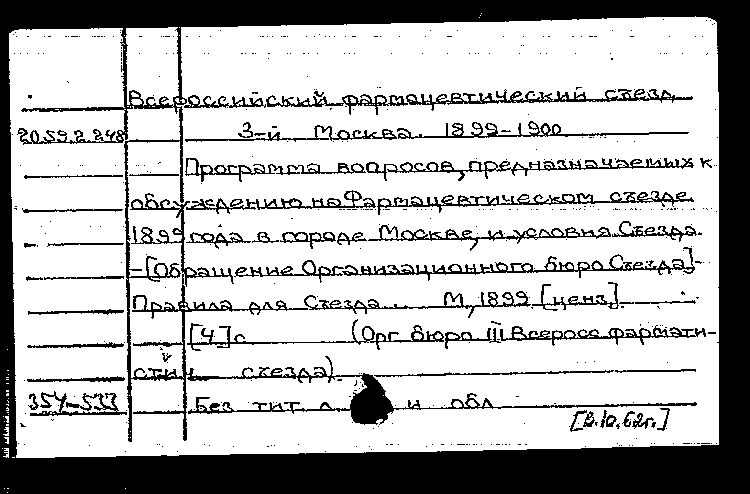 Всероссийский фармацевтический съезд,
20.59.2.248 3-й Москва. 1899-1900
Программа вопросов, предназначаемых к
обсуждению на Фармацевтическом съезде
1899 года в городе Москве, и условия Съезда.
-[Обращение Организационного бюро Съезда]-
Правила для Съезда.. М, 1899 [ценз]
[4]с (Орг бюро III Всеросс фармати-
стич съезда)
354-533 Без тит л и обл
[В.10.62г.]